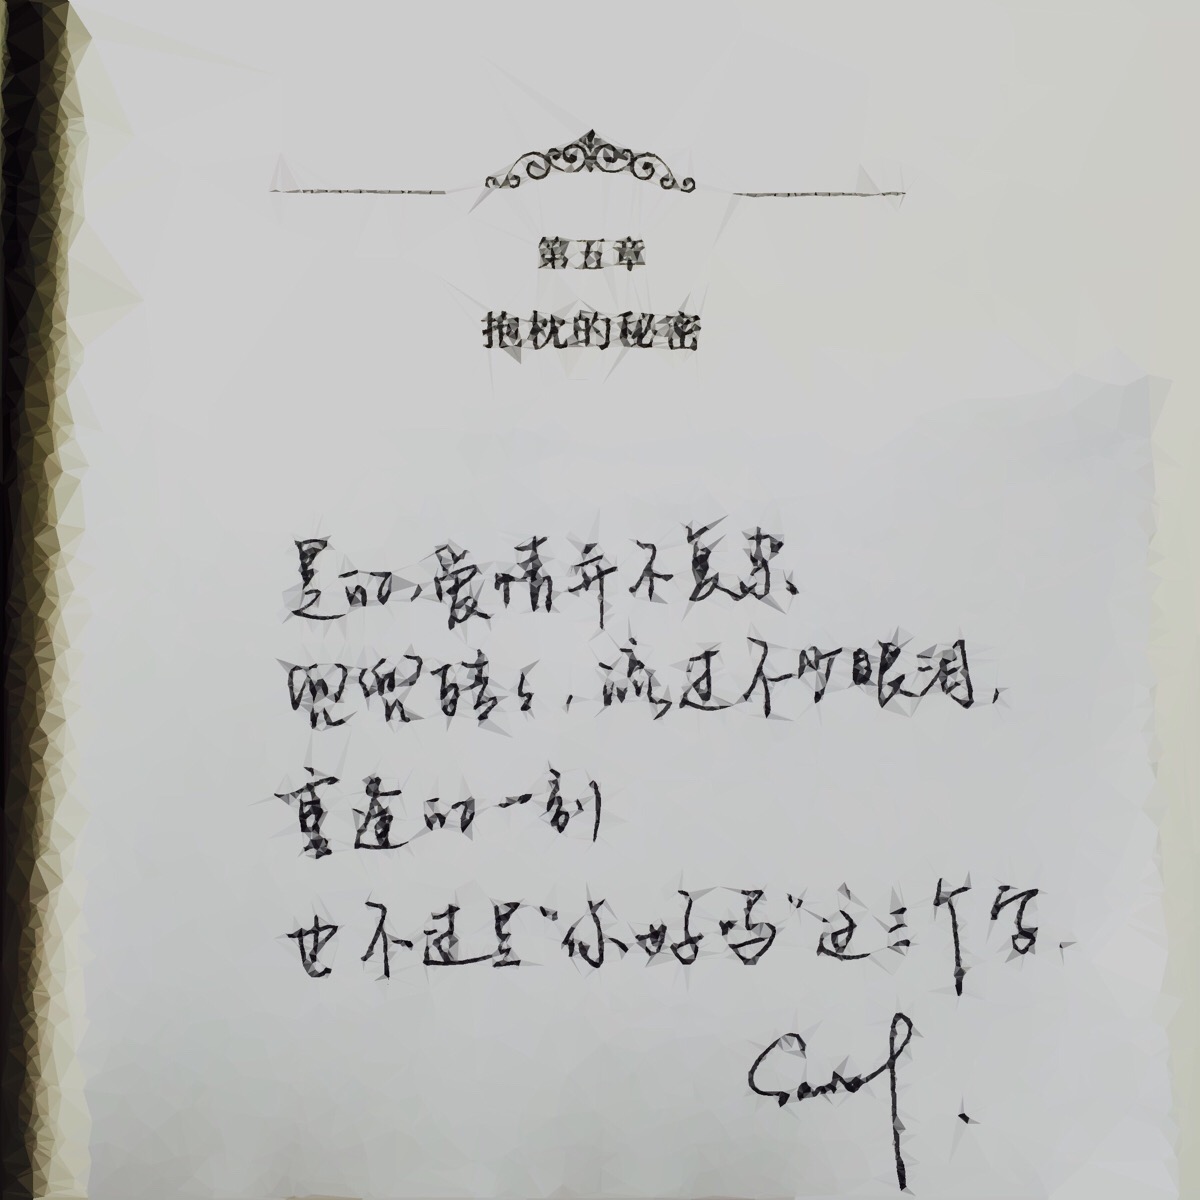 第五章
抱枕的秘密
是的,爱情并不复杂、
兜兜轉々,流过不少眼泪,
重逢的一刻
也不过是“你好吗”这三个字.